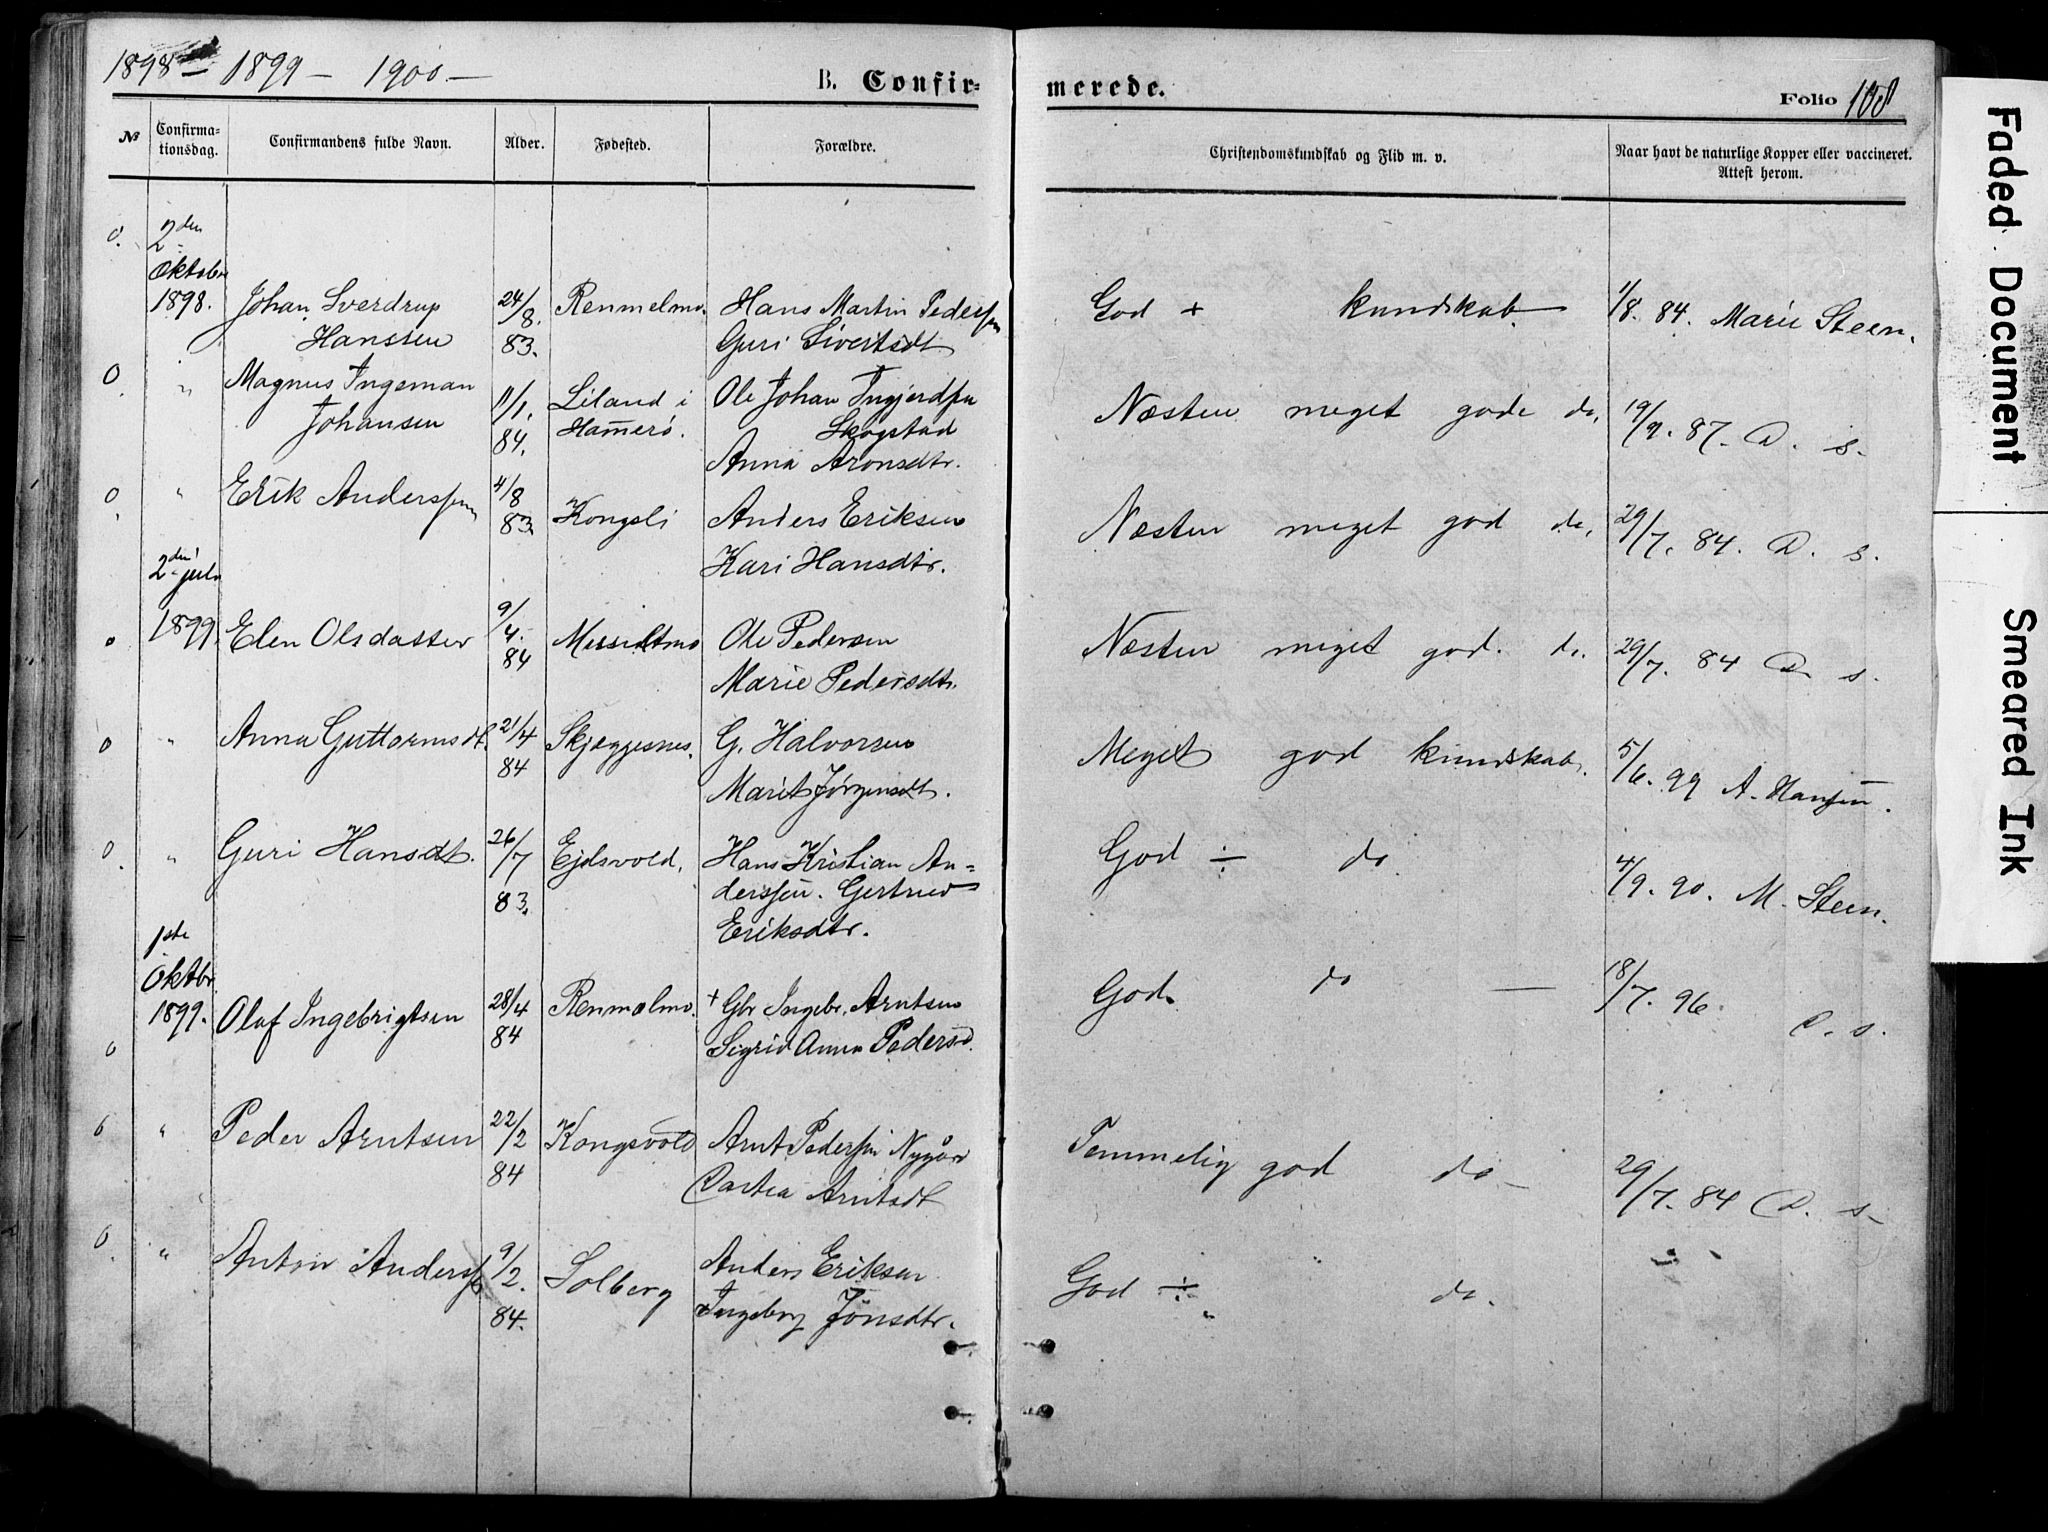 1898 – 1899 – 1900 –
B. Confir-
merede.
Folio 108
No
Confirma-
tionsdag.
Confirmandens fulde Navn.
Alder.
Fødested.
Forældre.
Christendomskundskab og Flid m. v.
Naar havt de naturlige Kopper eller vaccineret.
Attest herom.
0.
2den
Oktober
1898. Johan Sverdrup 24/8. Renmelmo. Hans Martin Pederssen God + kundskab 1/8. 84. Marie Steen.
Hanssen 83. Guri Sivertsdt
0. " Magnus Ingeman 11/1. Liland i Ole Johan Ingjerdssen Næsten meget gode do. 19/9. 87. D. s.
Johansen 84. Hamerö. Skogstad
Anna Aronsdtr.
0 " Erik Anderssen 4/8 Kongsli Anders Eriksen Næsten meget god do. 29/7. 84. D. s.
83. Kari Hansdtr.
2den juli
0 1899. Elen Olsdatter 9/4. Messeltmo Ole Pedersen Næsten meget god. do. 29/7. 84 D. s.
84 Marie Pedersdtr.
0 " Anna Guttormsdt. 21/4 Skjæggesnes. G. Halvorsen Meget god kundskab. 5/6. 99 A. Hanssen.
84 Marit Jörgensdt.
0. " Guri Hansdt. 26/7 Ejdsvold. Hans Kristian An- God ÷ do 4/9. 90. M. Steen.
83. derssen. Gertrud
Eriksdtr.
1ste
Oktbr
1899. Olaf Ingebrigtsen 28/4 Renmælmo. + Gbr Ingebr. Arntsen God. do — 18/7. 96. D. s.
0 84 Sigrid Anna Pedersd.
0 " Peder Arntsen 22/2 Kongsvold Arnt Pederssen Nygård Temmelig god do – 29/7. 84 D. s.
84 Dortea Arntsdt
0. " Anton Anderss 9/2. Solberg Anders Eriksen God ÷ " do.
84. Ingeborg Jonsdtr.
Faded Document
Smeared Ink